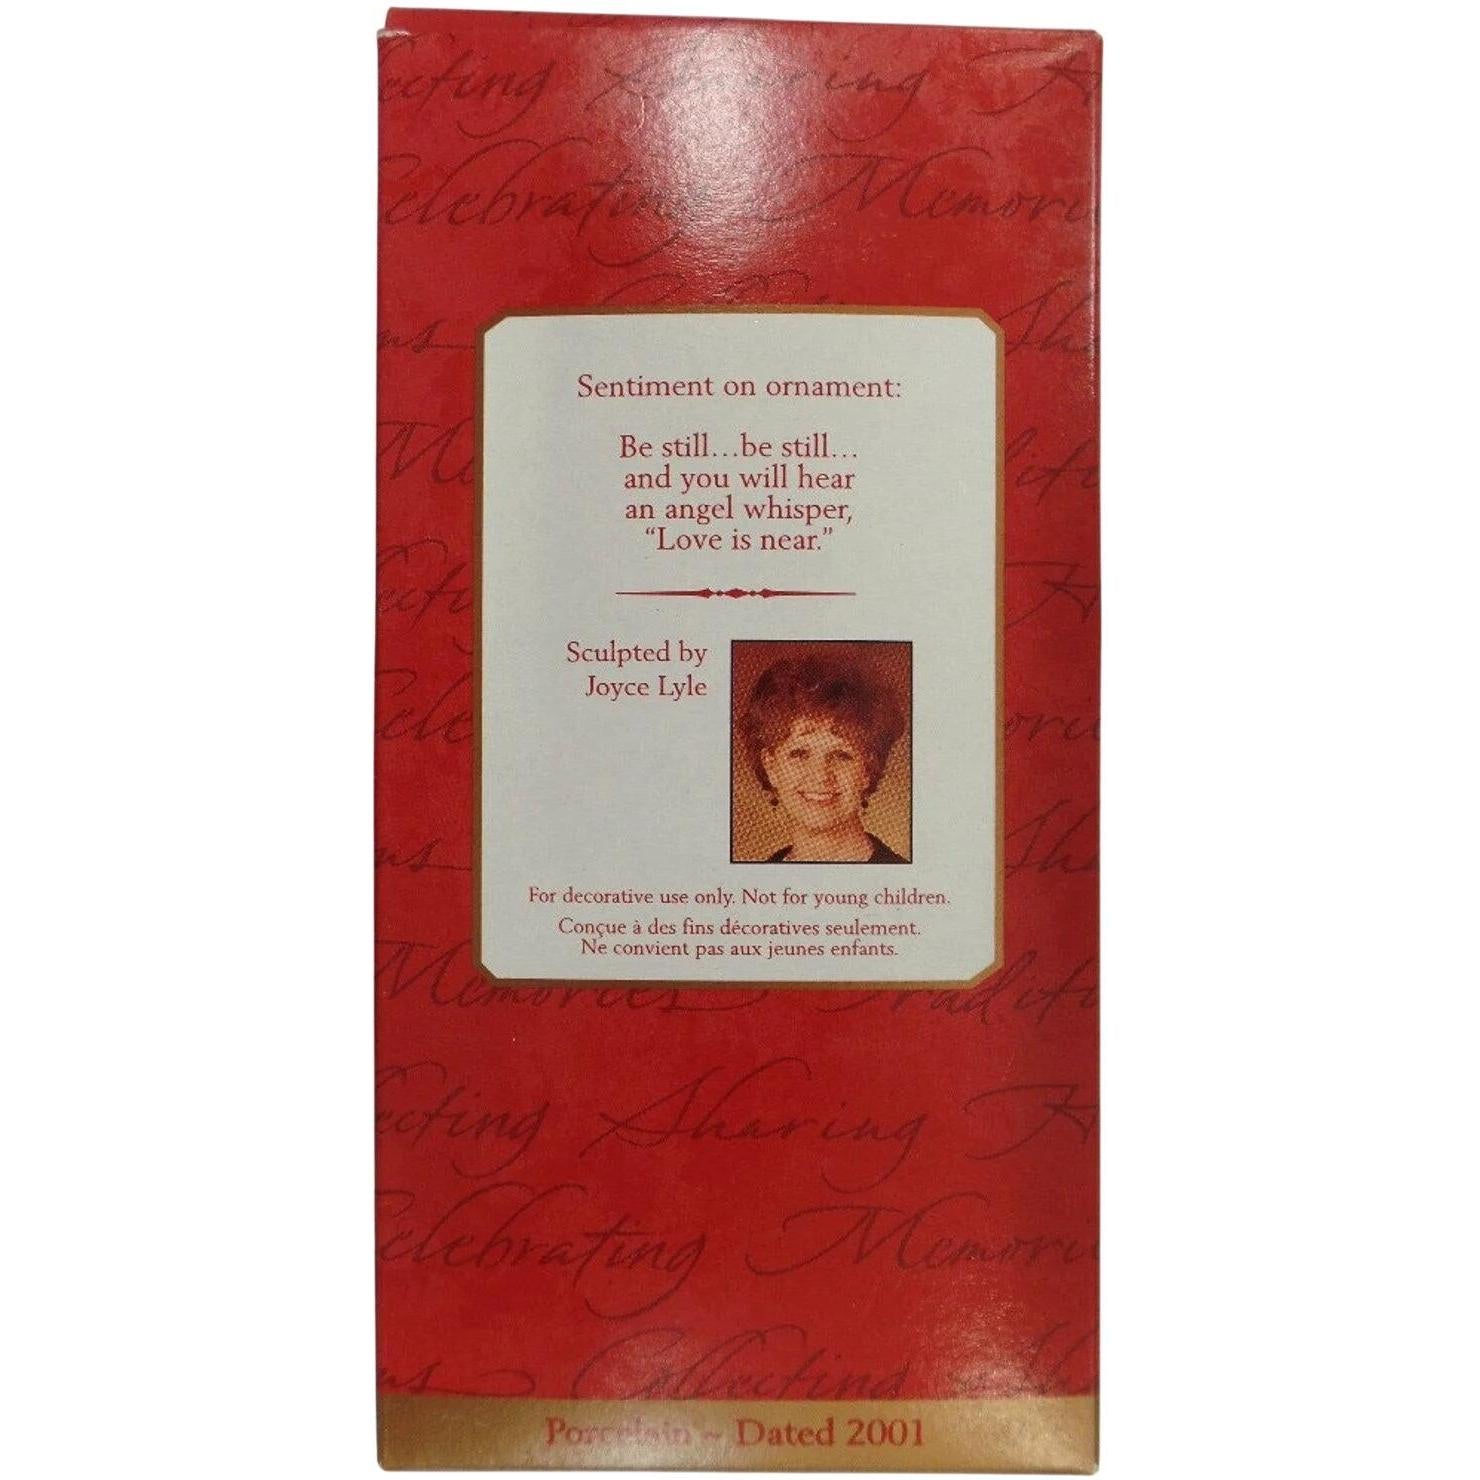 ecting Sharing
Celebrating Memori
ns Sh
M diti
ecti
Cele orie
ns Sha
Sentiment on ornament:
Be still...be still...
and you will hear
an angel whisper,
“Love is near.”
Sculpted by
Joyce Lyle
For decorative use only. Not for young children.
Conçue à des fins décoratives seulement.
Ne convient pas aux jeunes enfants.
Memories Traditi
ecting Sharing
Celebrating Memori
ns Collecting Sh
Porcelain ~ Dated 2001